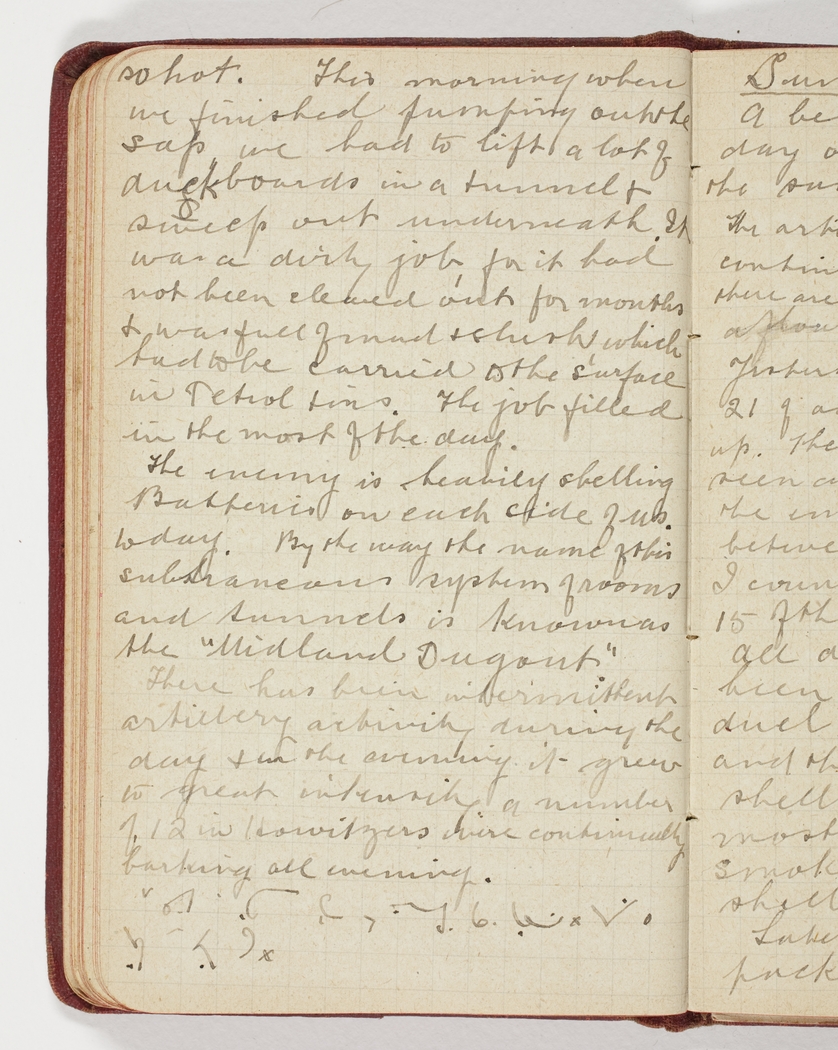 so hot. This morning when
we finished pumping out the
sap we had to lift a lot of
duckboards in a tunnel &
sweep out underneath. It
was a dirty job, for it had
not been cleaned out for months
& was full of mud & slush which
had to be carried to the surface
in Petrol tins. The job filled
in the most of the day.
The enemy is heavily shelling
Batteries on each side of us
today. By the way the name of this
subtraneous system of rooms
and tunnels is known as
the "Midland Dugout"
There has been intermittent
artillery activity during the
day & in the evening it grew
to great intensity a number
of 12 in Howitzers were continually
barking all evening.
A be
day o
the
The arti
contin
there are
Yester
21 of
up. The
seen
the
betwe
I coun
15 of th
all d
been
duel
and th
shell
most
smok
shell
Late
pack